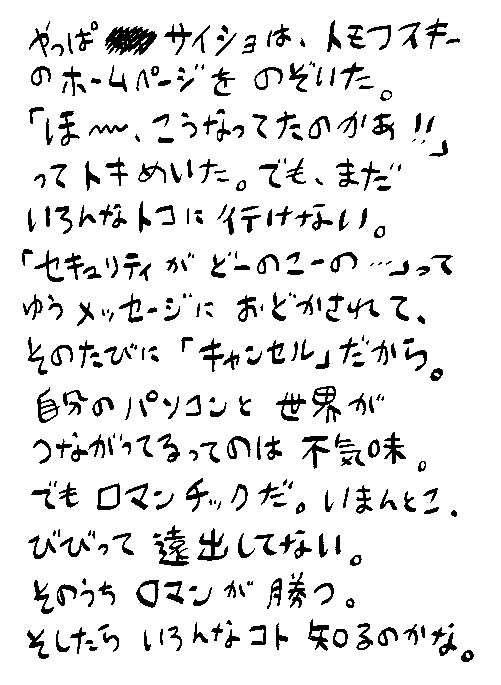 やっぱ サイショは、トモフスキー
のホームページを のぞいた。
「ほ〜、こうなってたのかぁ!!」
ってトキめいた。でも、まだ
いろんなトコに行けない。
「セキュリティが どーのこーの…」って
ゆうメッセージに おどかされて、
そのたびに「キャンセル」だから。
自分のパソコンと 世界が
つながってるってのは 不気味。
でも ロマンチックだ。いまんとこ、
びびって 遠出してない。
そのうち ロマンが 勝つ。
そしたら いろんなコト 知るのかな。